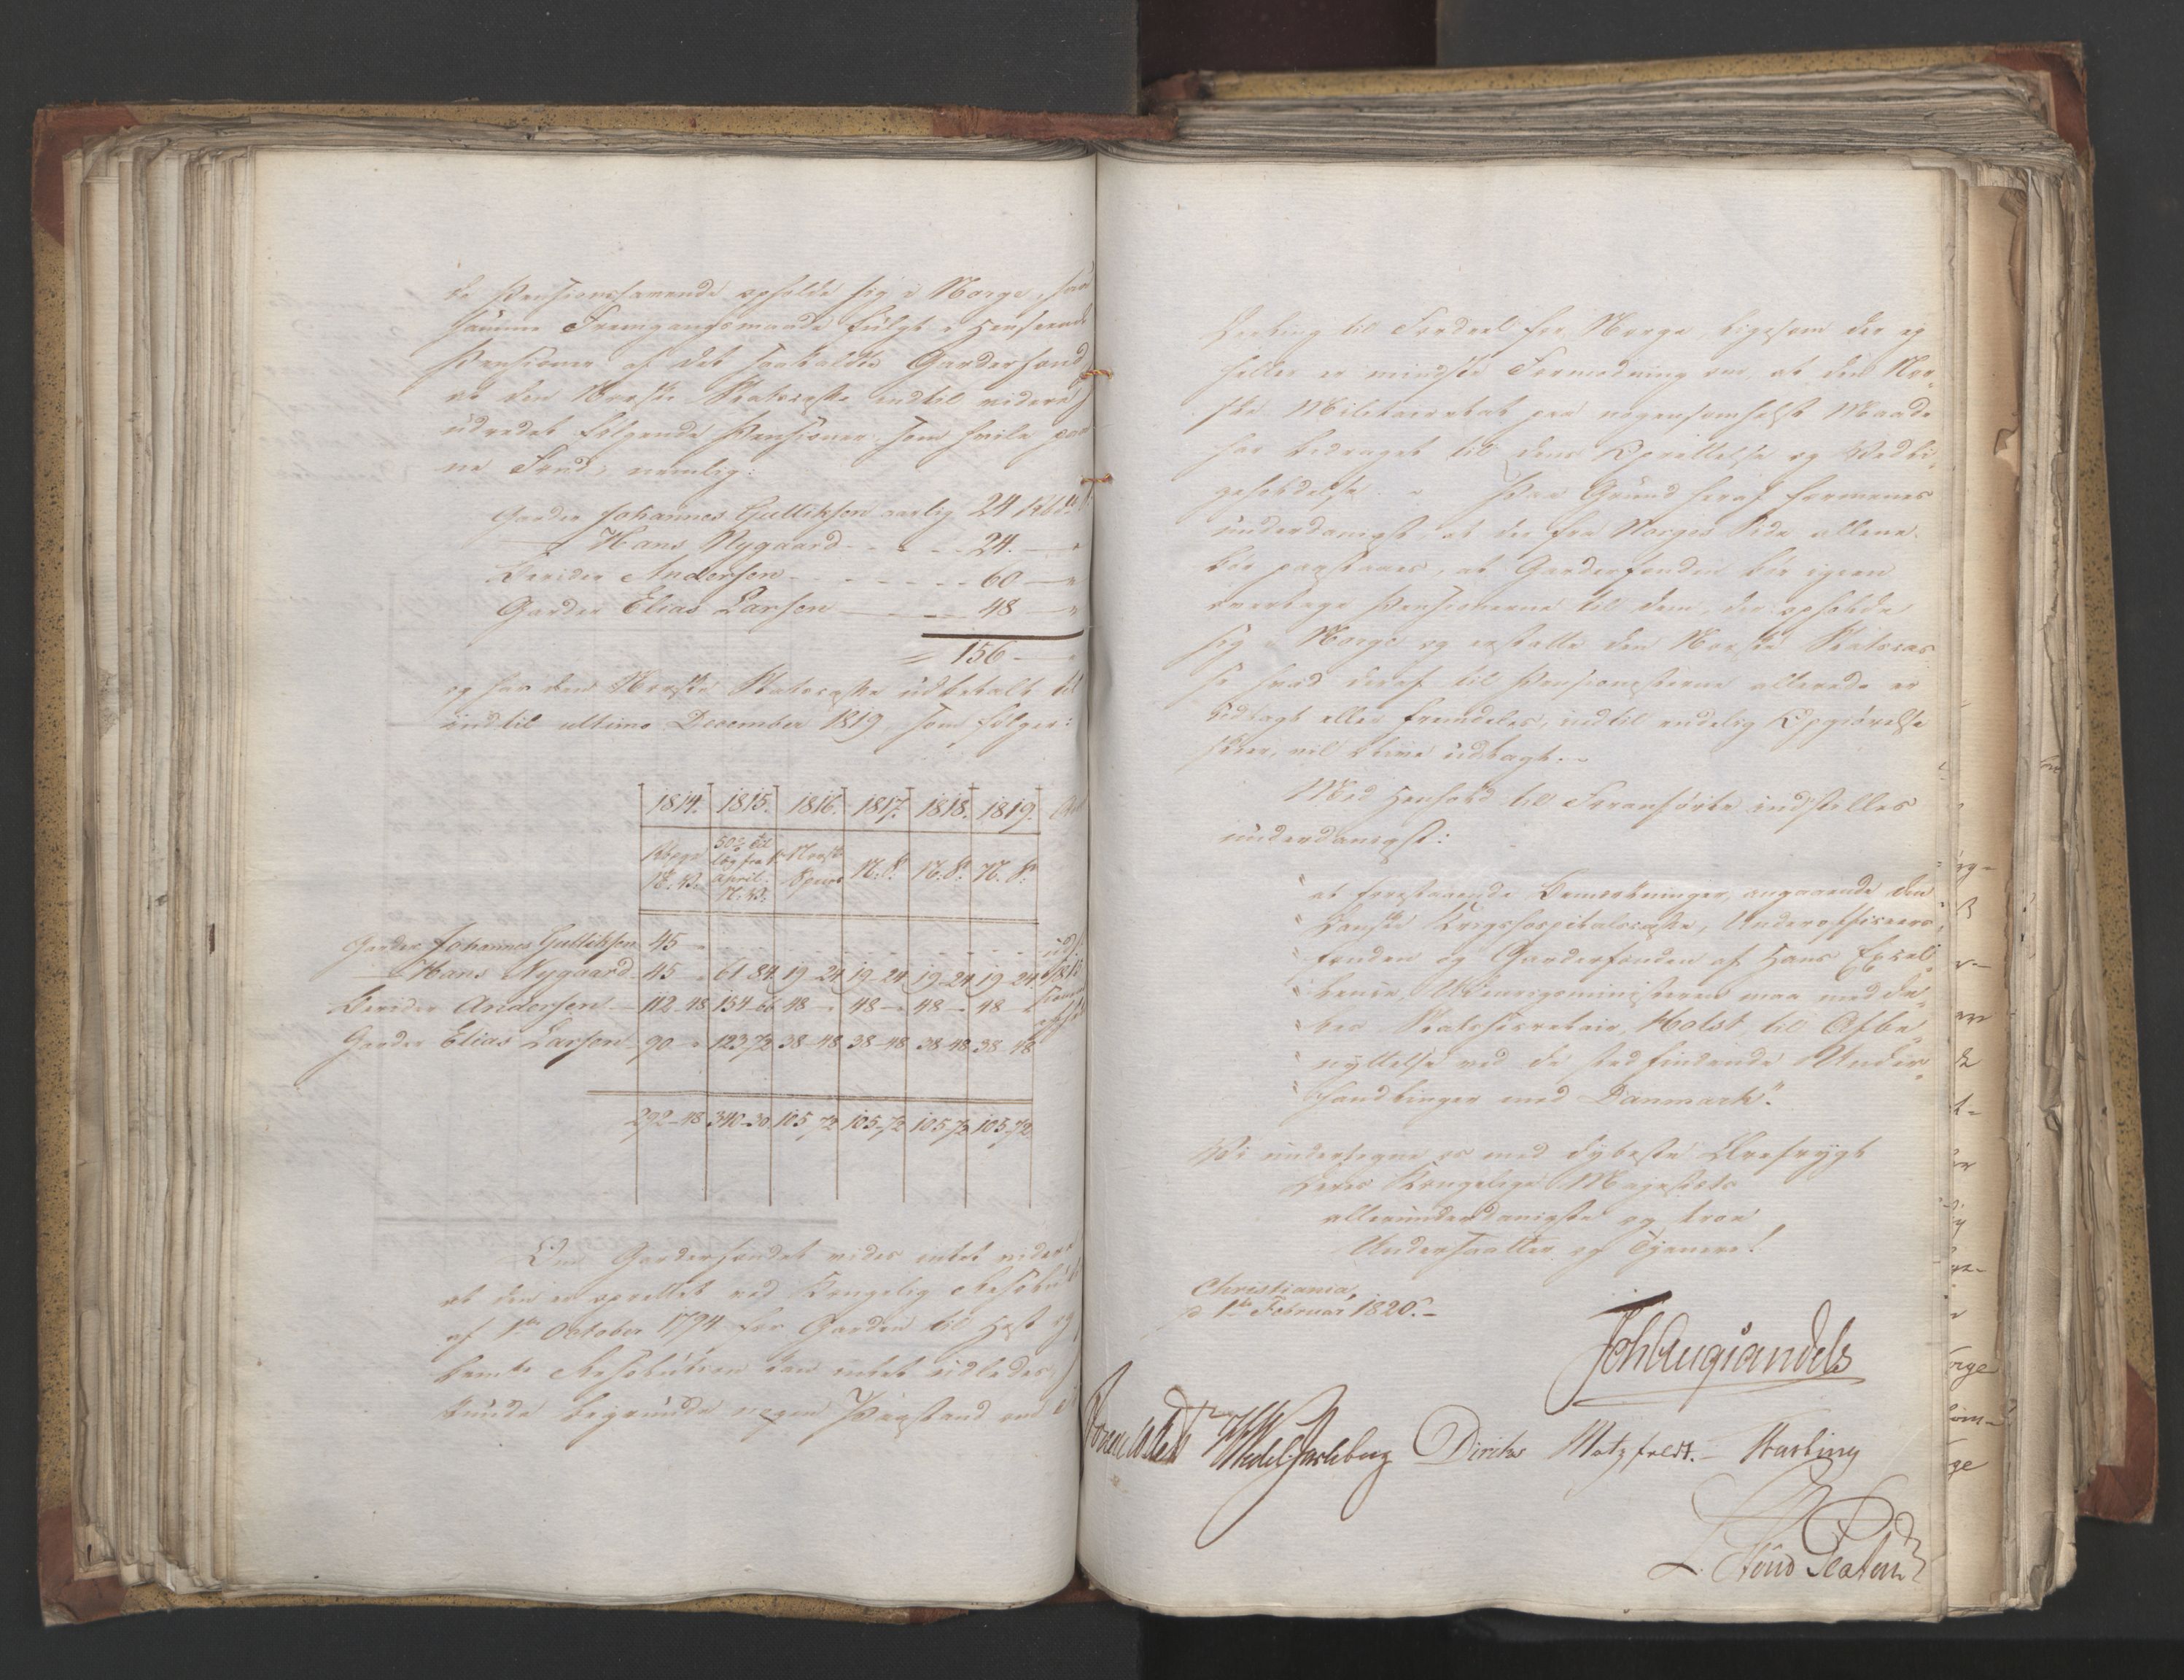 de Pensionshavende opholde sig i Norge, saa
samme Fremgangsmaade fulgt i Henseende
Pensioner af det saakaldte Garderfond
at den Norske Statscasse indtil videre
udredet følgende Pensioner, som hvile paa
ne Fond, nemlig:
Garder Johannes Gulliksen aarlig 24 Rbd.
— Hans Nygaard - - - - 24. — "
Berider Andersen - - - - - - 60 — "
Garder Elias Larsen — — 48 — "
= 156 —
og har den Norske Statscasse udbetalt til
indtil ultimo December 1819, som følger:
1814. 1815. 1816. 1817. 1818. 1819.
50 % til
læg fra 1
april.
N. V.
Norsk
Species
N. S. N. S. N. S.
Garder Johannes Gulliksen 45 - - - - - -
— Hans Nygaard — 45 " 61-84 19-24 19-24 19-24 19-24
Berider Andersen — 112-48 154-66 48 - 48 - 48 - 48 -
Garder Elias Larsen — 90 - 123-72 38-48 38-48 38-48 38-48
292-48 340-30 105-72 105-72 105-72 105-72
Om Garderfondet vides intet videre
at den er oprettet ved Kongelig Resolu
af 1ste October 1794 for Garden til Hest og
bemte Resolution kan intet udledes,
kunde begrunde nogen Paastand om
til Fordeel for Norge, ligesom der ej
heller er mindste Formodning om, at den Nor-
ske Militairetat paa nogensomhelst Maade
har bidraget til dens Oprettelse og Vedli-
geholdelse. - Paa Grund heraf formenes
underdanigst, at der fra Norges Side allene
bør paastaaes, at Garderfonden bør igjen
overtage Pensionerne til dem, der opholde
sig i Norge og erstatte den Norske Statscas-
se hvad deraf til Pensionisterne allerede er
udlagt eller fremdeles, indtil endelig Opgjørelse
skeer, vil blive udlagt. -
Med Henhold til Foranførte indstilles
underdanigst:
" at forestaaende Bemærkninger, angaaende den
" danske Krigshospitalscasse, Underofficeers-
" fonden og Garderfonden af Hans Excel-
" lence, Udenrigsministeren maa meddeles
" Statssecretair Holst til Afbe-
" nyttelse ved de stedfindende Under-
" handlinger med Danmark".
Vi undertegne os med dybeste Ærefrygt
Deres Kongelige Majestæts
allerunderdanigste og troe
Undersaatter og Tjenere!
Christiania,
d 1ste Februar 1820. -
Joh Aug Sandels
Sommerhielm HWedel Jarlsberg Diriks Motzfeldt. - Fasting
L. Stoud Platou